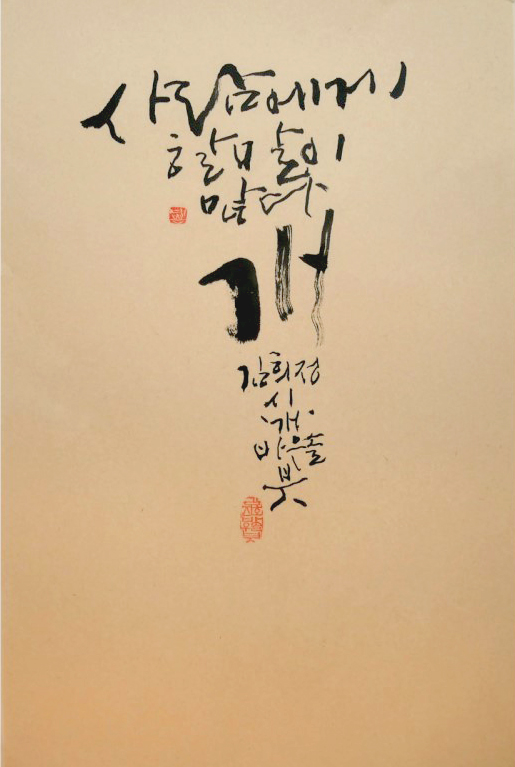 사람에게
할 말이
많다
개
김희정
시
'개'
바우솔
붓